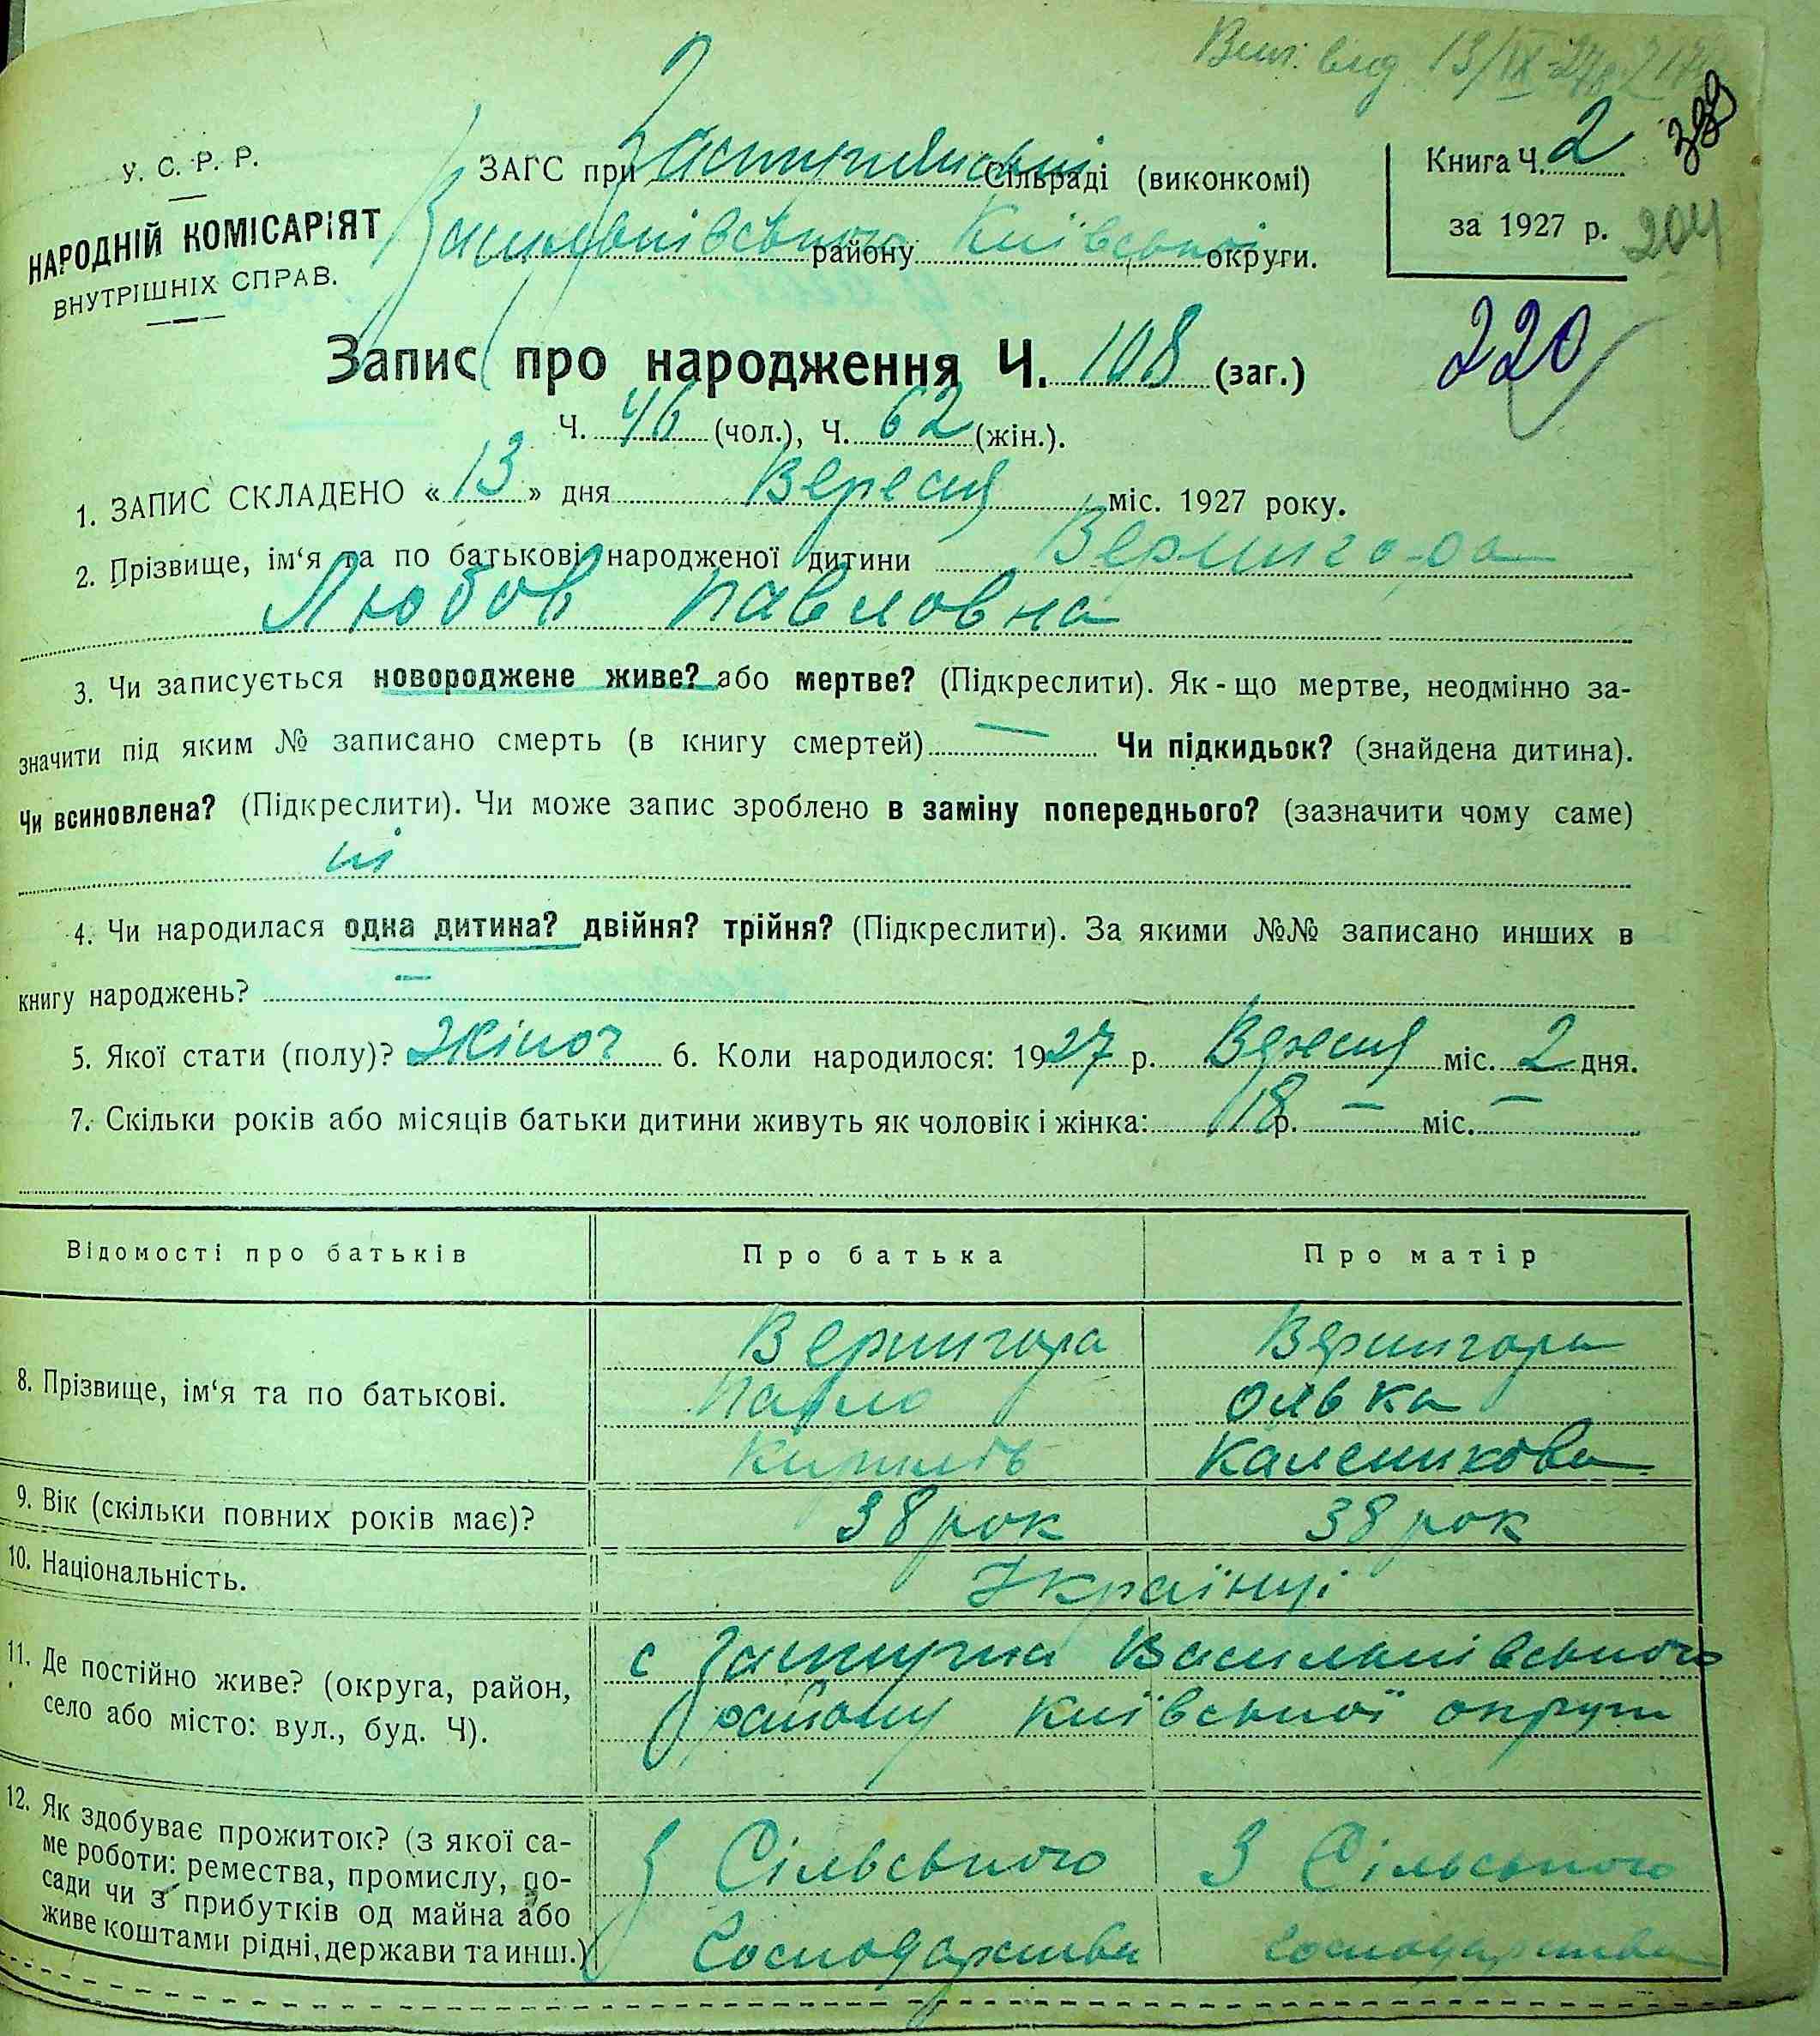 Вип. вид. 13/IX-27 р.
У. С. Р. Р.
НАРОДНІЙ КОМІСАРІЯТ
ВНУТРІШНІХ СПРАВ.
ЗАГС при Застугнянській Сільраді (виконкомі)
Васильківського району Київської округи.
Книга Ч. 2
за 1927 р.
204
220
Запис про народження Ч. 108 (заг.)
Ч. 46 (чол.), Ч. 62 (жін.).
1. ЗАПИС СКЛАДЕНО « 13 » дня Вересня міс. 1927 року.
2. Прізвище, ім‘я та по батькові народженої дитини Вернигора
Любов Павловна
3. Чи записується новороджене живе? або мертве? (Підкреслити). Як-що мертве, неодмінно за-
значити під яким № записано смерть (в книгу смертей) — Чи підкидьок? (знайдена дитина).
Чи всиновлена? (Підкреслити). Чи може запис зроблено в заміну попереднього? (зазначити чому саме)
ні
4. Чи народилася одна дитина? двійня? трійня? (Підкреслити). За якими №№ записано инших в
книгу народжень? —
5. Якої стати (полу)? Жіноч 6. Коли народилося: 1927 р. Вересня міс. 2 дня.
7. Скільки років або місяців батьки дитини живуть як чоловік і жінка: 18 р. — міс. —
Відомості про батьків Про батька Про матір
8. Прізвище, ім‘я та по батькові.
Вернигора Вернигора
Павло Олька
Калениковна
9. Вік (скільки повних років має)? 38 рок 38 рок
10. Національність. Українці
11. Де постійно живе? (округа, район,
село або місто: вул., буд. Ч).
с Застугна Васильківського
району Київської округи
12. Як здобуває прожиток? (з якої са-
ме роботи: ремества, промислу, по-
сади чи з прибутків од майна або
живе коштами рідні, держави та инш.)
З Сільського З Сільського
Господарства господарства